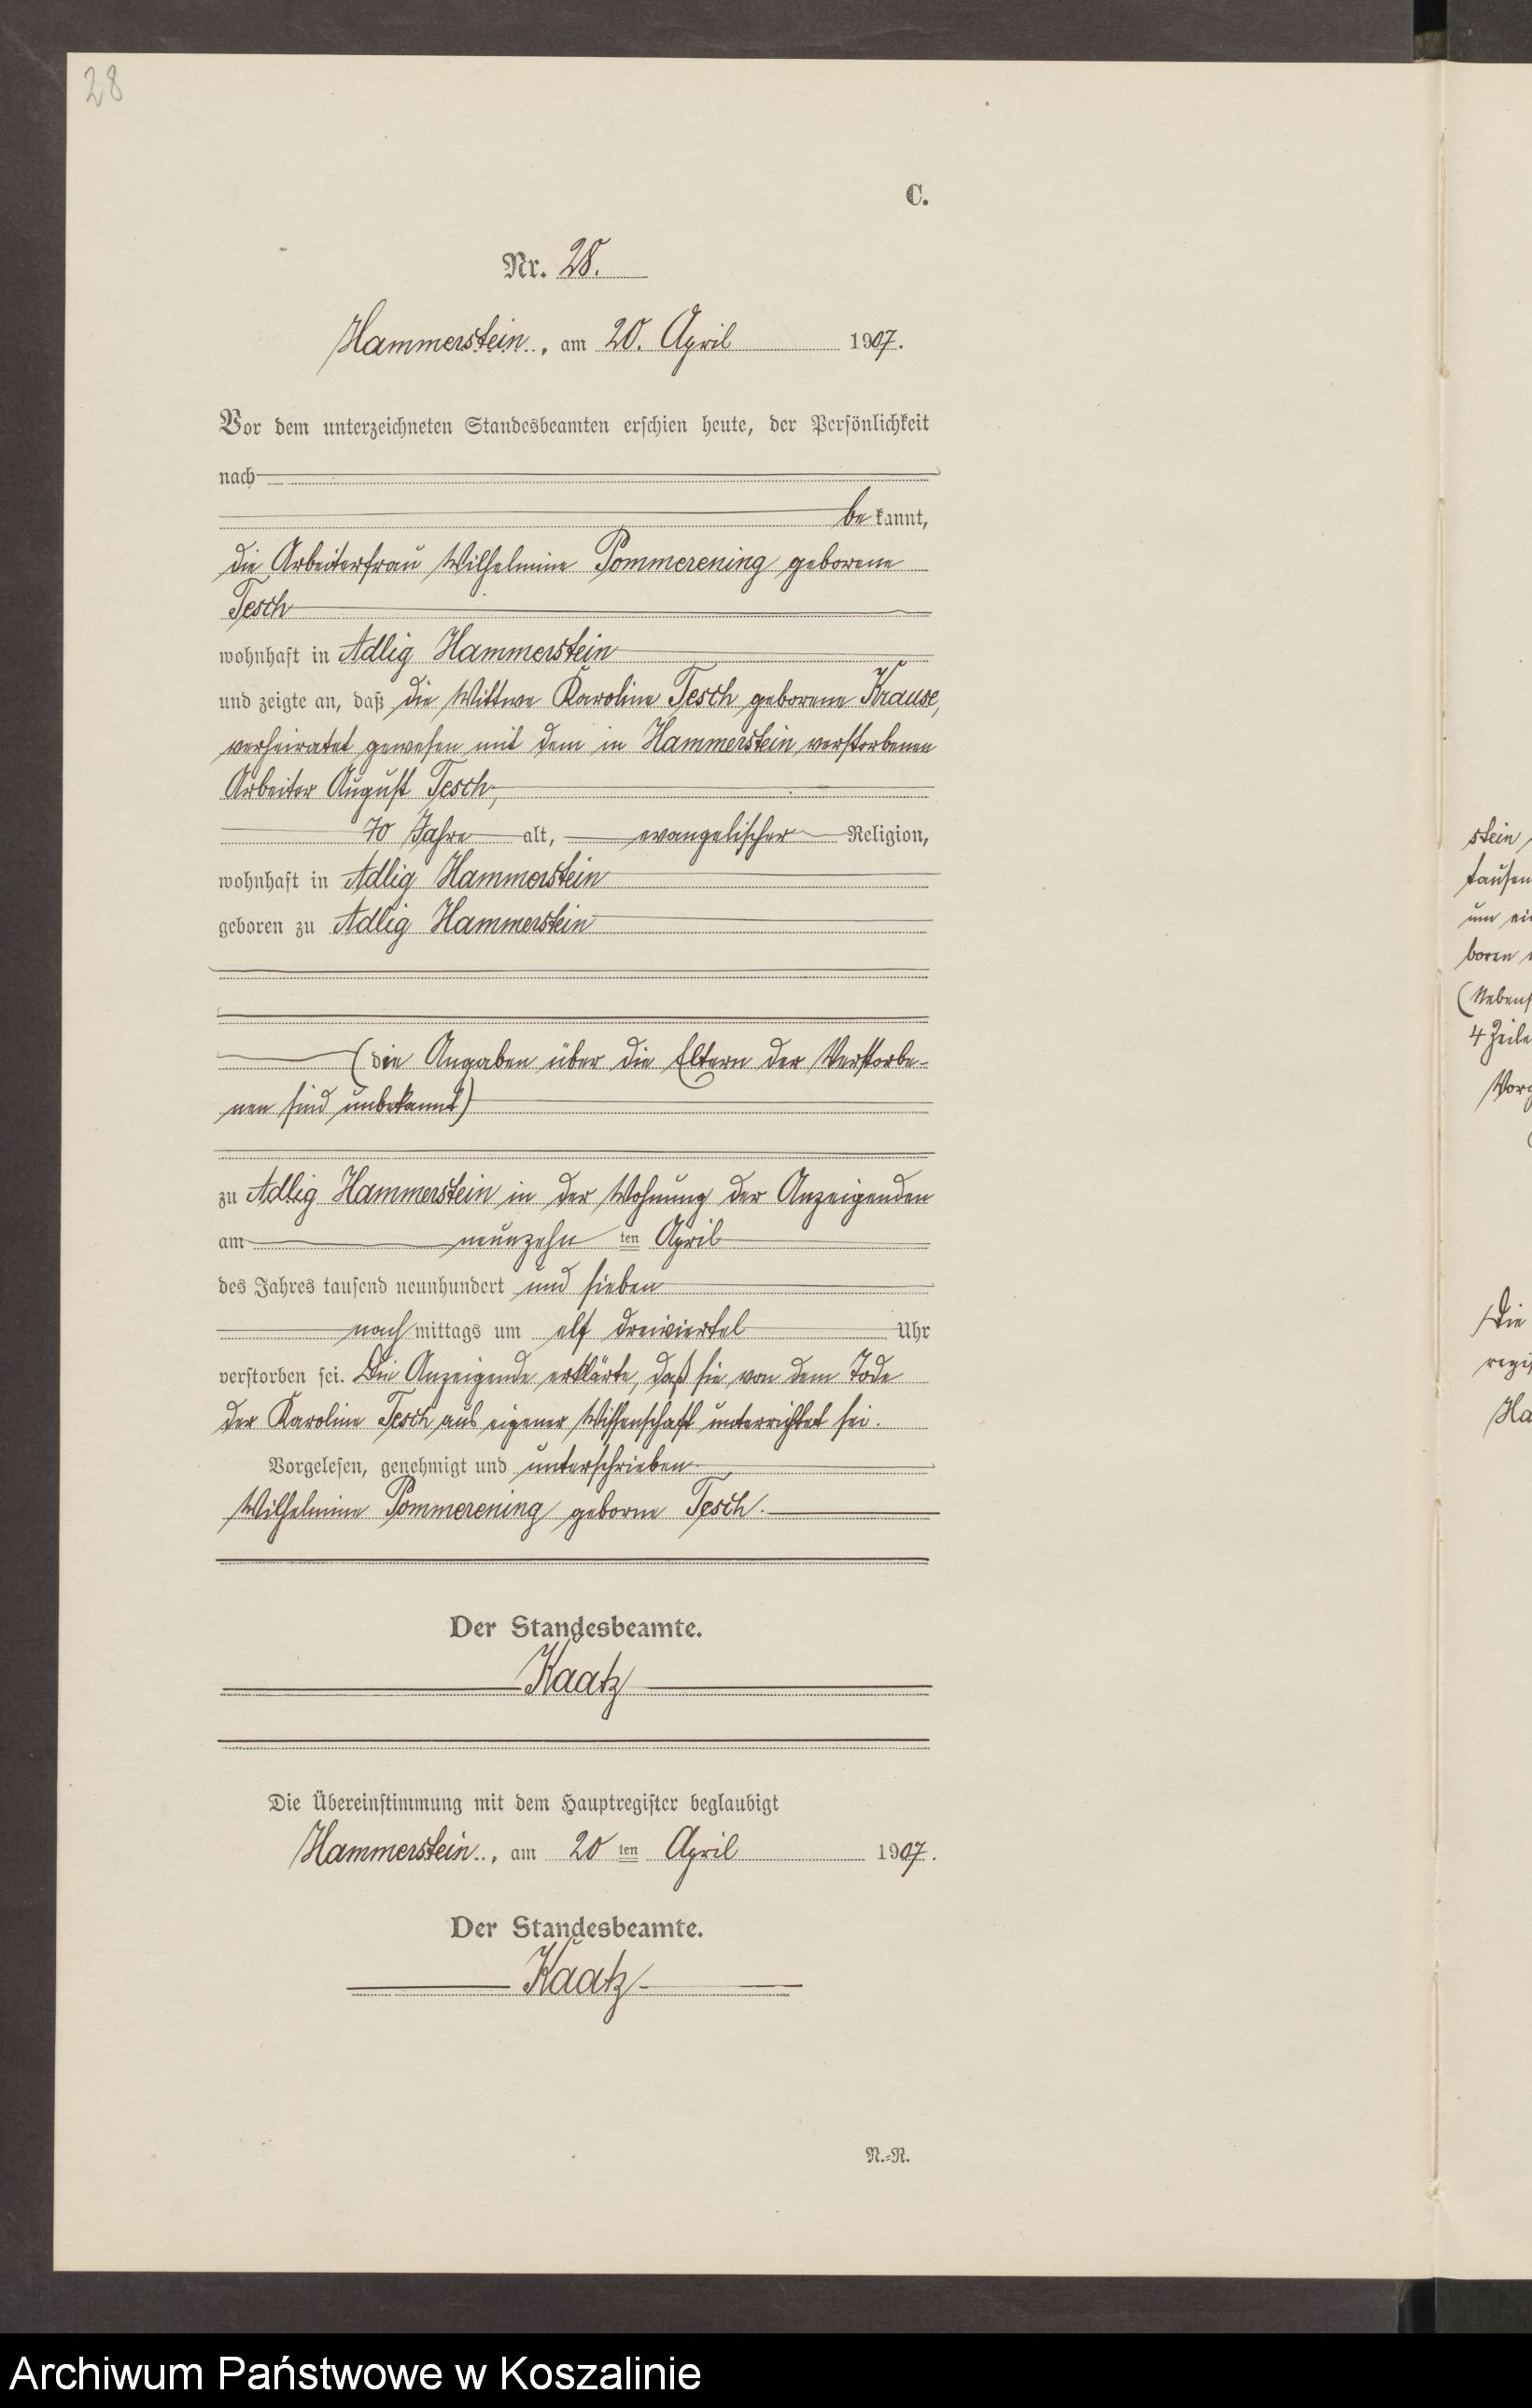 28
C.
Nr. 28.
Hammerstein, am 20. April 1907.
Vor dem unterzeichneten Standesbeamten erschien heute, der Persönlichkeit
nach
be kannt,
die Arbeiterfrau Wilhelmine Pommerening geborene
Tesch
wohnhaft in Adlig Hammerstein
und zeigte an, daß die Wittwe Karoline Tesch geborene Krause,
verheiratet gewesen mit dem in Hammerstein verstorbenen
Arbeiter August Tesch,
70 Jahre alt, evangelischer Religion,
wohnhaft in Adlig Hammerstein
geboren zu Adlig Hammerstein
(die Angaben über die Eltern der Verstorbe-
nen sind unbekannt)
zu Adlig Hammerstein in der Wohnung der Anzeigenden
am neunzehn ten April
des Jahres tausend neunhundert und sieben
nach mittags um elf dreiviertel Uhr
verstorben sei. Die Anzeigende erklärte, daß sie von dem Tode
der Karoline Tesch aus eigener Wissenschaft unterrichtet sei.
Vorgelesen, genehmigt und unterschrieben
Wilhelmine Pommerening geborne Tesch.
Der Standesbeamte.
Kaatz
Die Übereinstimmung mit dem Hauptregister beglaubigt
Hammerstein, am 20 ten April 1907.
Der Standesbeamte.
Kaatz
N.-R.
stein
tausen
um ei
boren
(Nebens
4 Zeile
Vorg
Die
regi
Ha
Archiwum Państwowe w Koszalinie